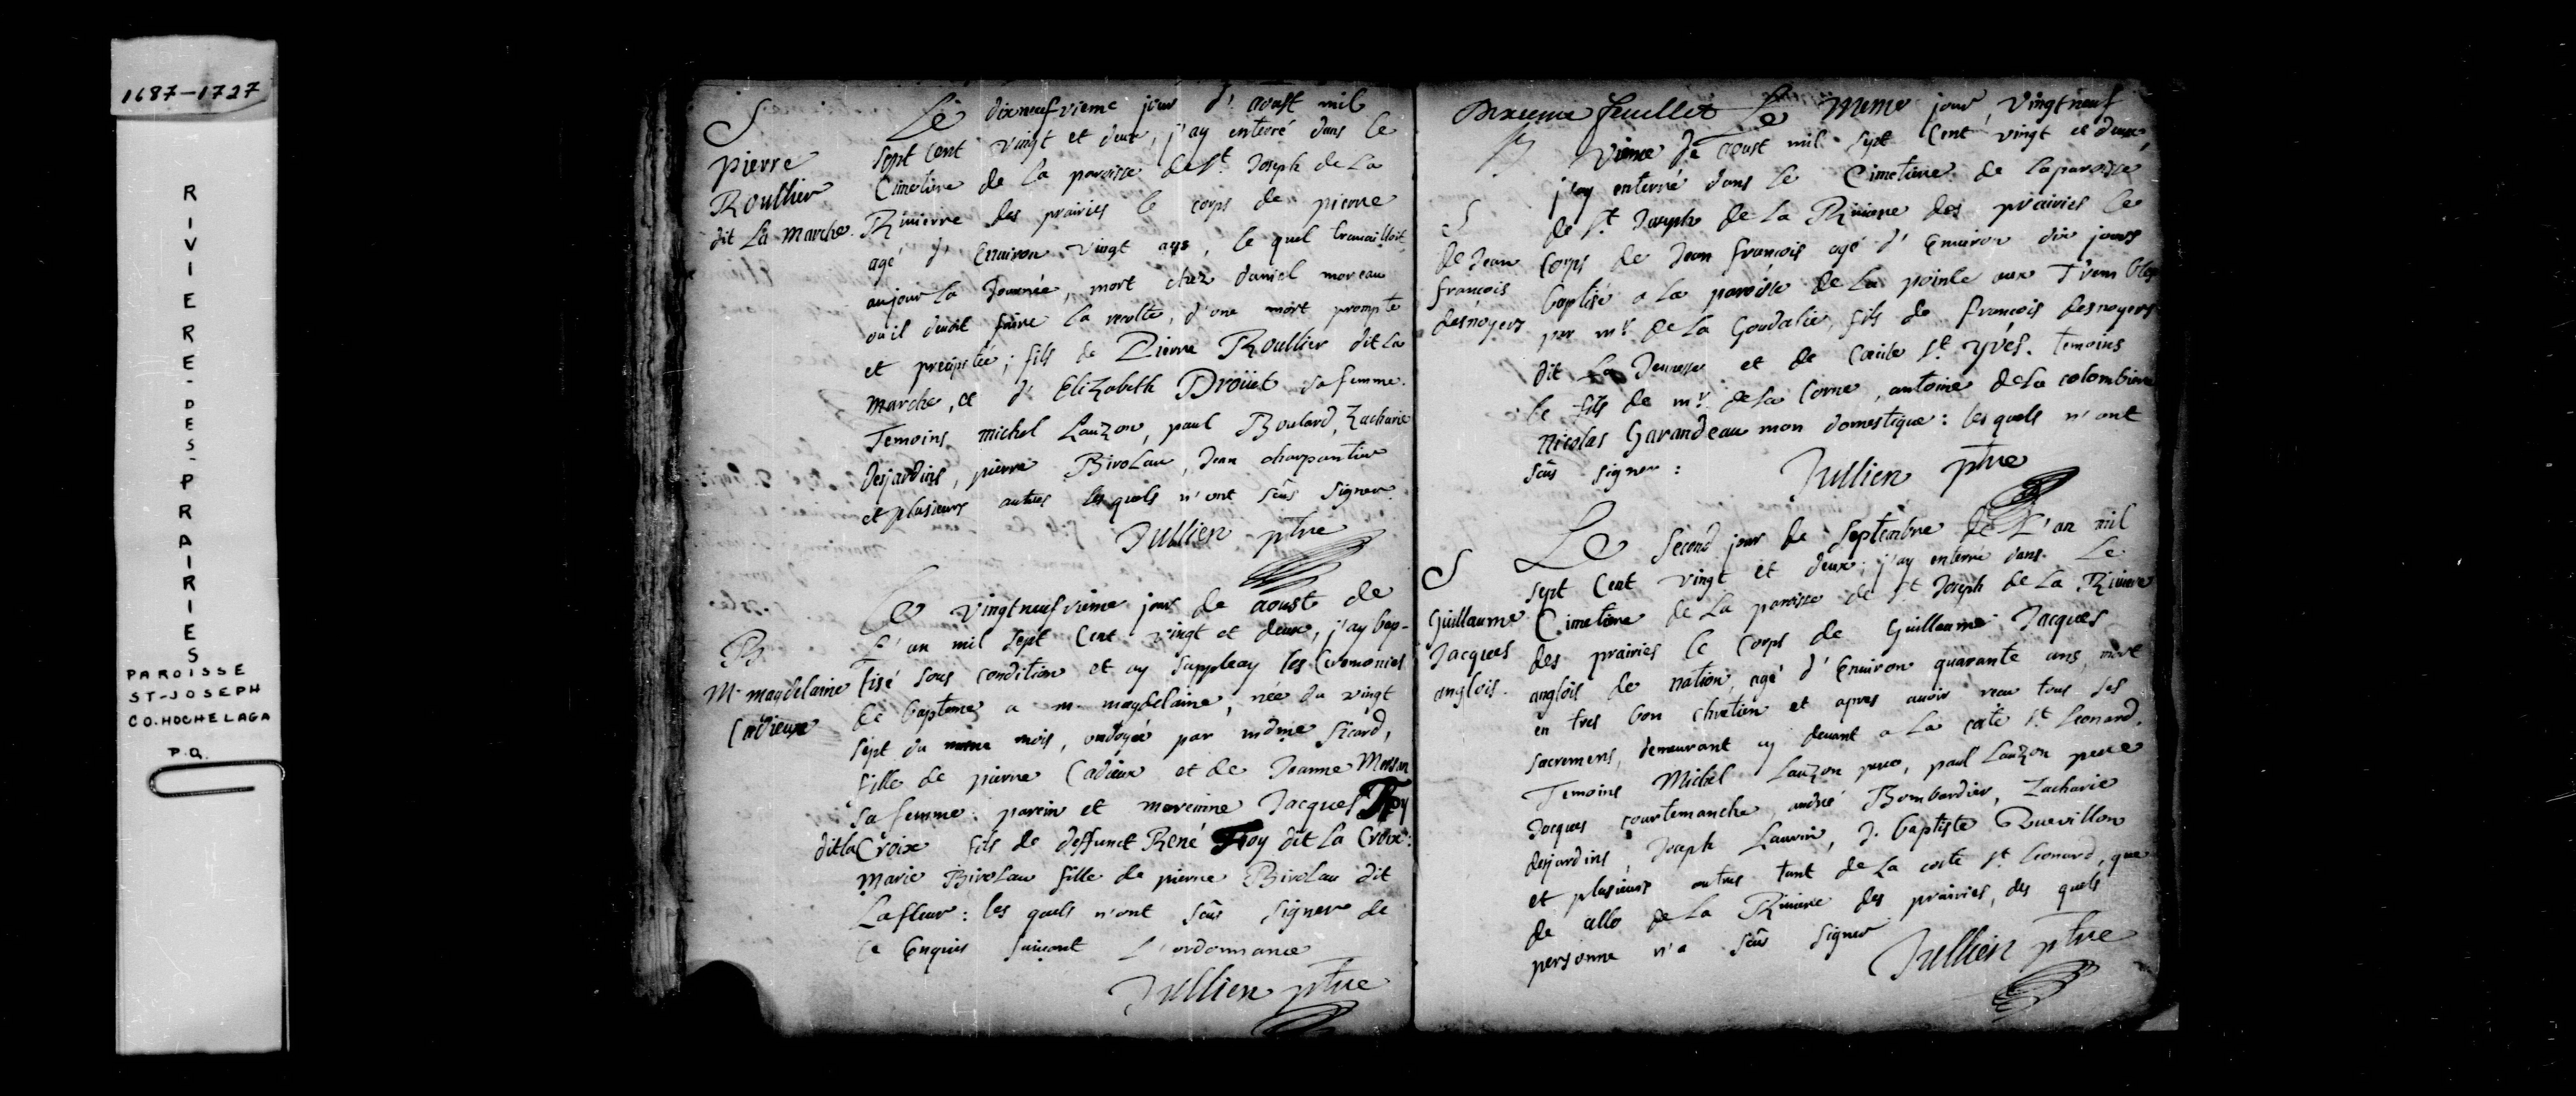 1687-1727
RIVIERE-DES-PRAIRIES
PAROISSE
ST-JOSEPH
CO. HOCHELAGA
P.Q.
S
pierre
Roullier
dit La marche.
Le dixneufvieme jour d'aoust mil
sept cent vingt et deux, j'ay enterré dans le
Cimetiere de la paroisse de St. Joseph de La
Rivierre des prairies le corps de pierre
agé d'Environ vingt ans, le quel travailloit
aujour La Journée, mort chez daniel moreau
ou il devoit faire la recolte, d'une mort prompte
et precipitée; fils de Pierre Roullier dit La
marche, et d'Elizabeth Droüet sa femme.
Temoins michel Lauzon, paul Boulard, Zacharie
desjardins, pierre Birolau, Jean charpantier
et plusieurs autres les quels n'ont sçus signer.
Jullien ptre
B
M. magdelaine
Cadieux
Le vingtneufvieme jour de aoust de
L'an mil sept Cent vingt et deux, j'ay bap-
tisé sous condition et ay suppleay les Ceremonies
de bapteme a m. magdelaine, née du vingt
sept du meme mois, ondoyée par mdme Sicard,
fille de pierre Cadieux et de Jeanne Mersan
sa femme: parein et mareinne Jacques Roy
dit la Croix fils de deffunct René Roy dit La Croix:
Marie Birolau fille de pierre Birolau dit
Lafleur: les quels n'ont sçus signer de
ce Enquis suivant L'ordonnance
Jullien ptre
feuillet Le meme jour, vingtneuf
vieme de aoust mil sept Cent vingt et deux,
j'ay enterré dans le Cimetiere de la paroisse
de St Joseph de La Riviere des prairies le
S
de Jean
françois
desnoyers
Corps de Jean françois agé d'Environ dix jours
baptisé a La paroisse de La pointe aux Trembles
par mr. de La Goudalie, fils de françois desnoyers
dit La Jeunesse et de Cœcile St. Yves. temoins
le fils de mr. de La Corne, antoine de La colombiere
Nicolas Garandeau mon domestique: les quels n'ont
sçus signer:
Jullien ptre
S
Guillaume
Jacques
anglois.
Le Second jour de Septembre de L'an mil
sept Cent vingt et deux; j'ay enterré dans Le
Cimetiere de La paroisse de St. Joseph de La Riviere
des prairies le Corps de Guillaume Jacques
anglois de nation, agé d'Environ quarante ans, mort
en tres bon chretien et apres avoir recu tous ses
sacremens, demeurant cy devant a La coste St. Leonard.
Temoins Michel Lauzon pere, paul Lauzon pere
Jacques courtemanche, andré Bombardier, Zacharie
desjardins, Joseph Laurin, J. baptiste Quevillon
et plusieurs autres tant de La coste St Leonard, que
de celle de La Riviere des prairies, des quels
personne n'a sçus signer
Jullien ptre